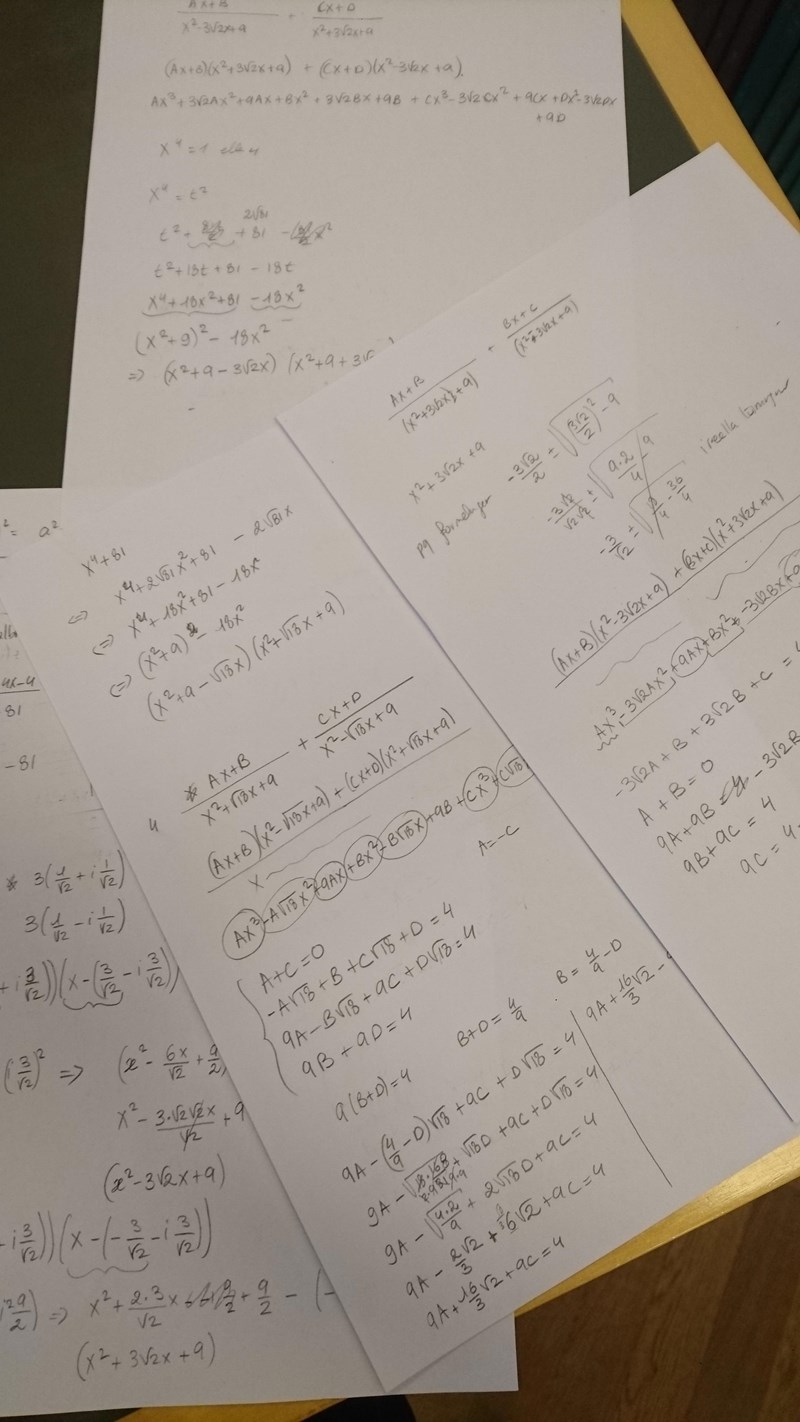 Ax+B / x²-3√2x+9 + Cx+D / x²+3√2x+9
(Ax+B)(x²+3√2x+9) + (Cx+D)(x²-3√2x+9)
Ax³+3√2Ax²+9Ax+Bx²+3√2Bx+9B+Cx³-3√2Cx²+9Cx+Dx²-3√2Dx
+9D
x⁴=1
x⁴=t²
2√81
t²+ +81 -
t²+18t+81-18t
x⁴+18x²+81-18x²
(x²+9)²-18x²
=> (x²+9-3√2x) (x²+9+3√
Ax+B / (x²+3√2x+9) + Bx+C / (x²-3√2x+9)
x²+3√2x+9
pq formeln ger
-3√2/2 ± √((3√2/2)²-9)
-3√2/√2√2 ± √(9·2/4-9)
-3/√2 ± √( /4-36/4)
(Ax+B)(x²-3√2x+9)+(Bx+C)(x²+3√2x+9)
Ax³-3√2Ax²+9Ax+Bx²-3√2Bx+9
-3√2A+B+3√2B+C=
A+B=0
9A+9B= -3√2B
9B+9C=4
9C=4-
x⁴+81
<=> x⁴+2√81x²+81-2√81x
<=> x⁴+18x²+81-18x²
<=> (x²+9)²-18x²
(x²+9-√18x)(x²+√18x+9)
4
* Ax+B / x²+√18x+9 + Cx+D / x²-√18x+9
(Ax+B)(x²-√18x+9)+(Cx+D)(x²+√18x+9)
x
Ax³-A√18x²+9Ax+Bx²-B√18x+9B+Cx³+C√18
A=-C
A+C=0
-A√18+B+C√18+D=4
9A-B√18+9C+D√18=4
9B+9D=4
9(B+D)=4
B+D=4/9
B=4/9-D
9A-(4/9-D)√18+9C+D√18=4
9A+16/3√2-
9A-√ +√18D+9C+D√18=4
9A-√(4·2/9)+2√18D+9C=4
9A-2√2/3+ 6√2+9C=4
9A+16/3√2+9C=4
²= a²
4x-4
81
-81
* 3(1/√2+i1/√2)
3(1/√2-i1/√2)
+i3/√2))(x-(3/√2-i3/√2))
(i3/√2)² => (x²-6x/√2+9/2)
x²-3·√2√2x/√2+9
(x²-3√2x+9)
-i3/√2))(x-(-3/√2-i3/√2))
i²9/2) => x²+2·3/√2x +9/2-(-
(x²+3√2x+9)